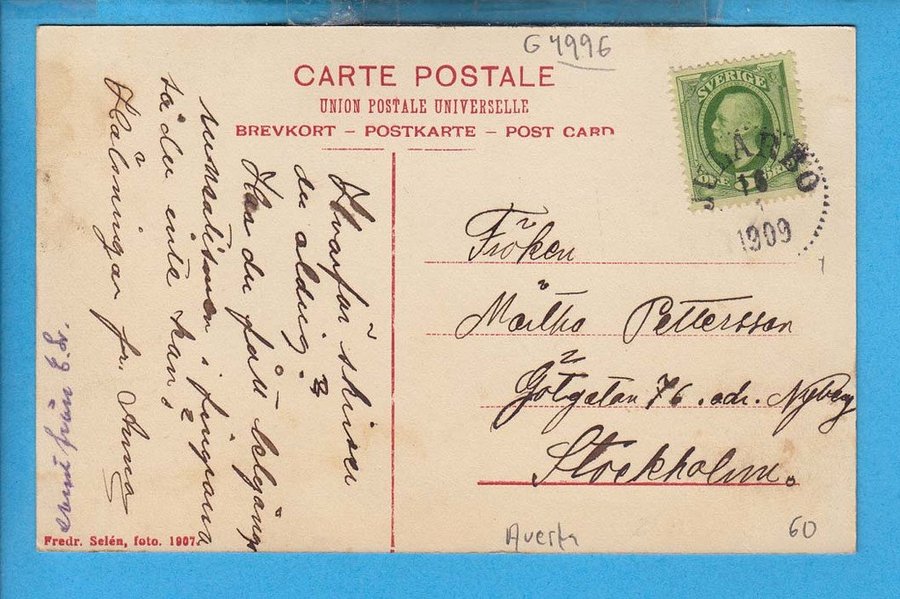 G 4996
CARTE POSTALE
UNION POSTALE UNIVERSELLE
BREVKORT – POSTKARTE – POST CARD
SVERIGE
1909
Hvarför skriver
du aldrig?
Har du fått
i fingrarna
så du inte kan?
Hälsningar fr. Anna
från E. L.
Fröken
Märtha Pettersson
Götgatan 76. adr. Nyberg
Stockholm.
Fredr. Selén, foto. 1907.
Avesta
60